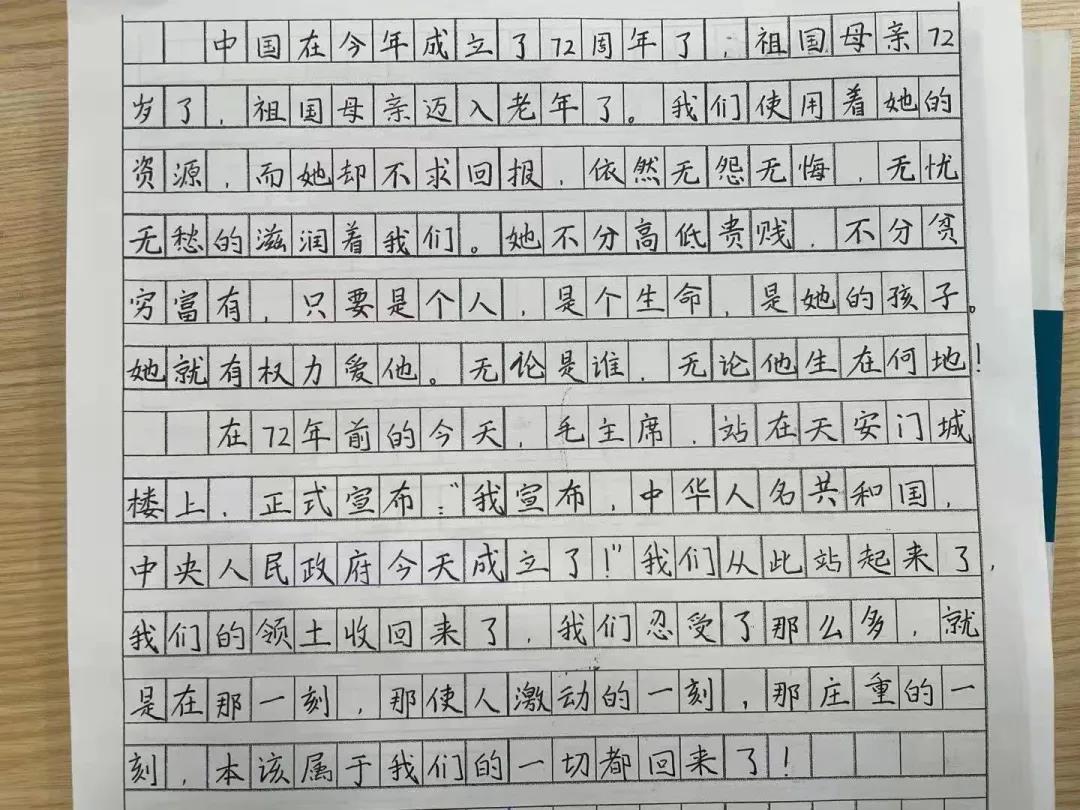 中国在今年成立了72周年了，祖国母亲72
岁了，祖国母亲迈入老年了。我们使用着她的
资源，而她却不求回报，依然无怨无悔，无忧
无愁的滋润着我们。她不分高低贵贱，不分贫
穷富有，只要是个人，是个生命，是她的孩子。
她就有权力爱他。无论是谁，无论他生在何地！
在72年前的今天，毛主席，站在天安门城
楼上，正式宣布：“我宣布，中华人名共和国，
中央人民政府今天成立了！”我们从此站起来了，
我们的领土收回来了，我们忍受了那么多，就
是在那一刻，那使人激动的一刻，那庄重的一
刻，本该属于我们的一切都回来了！